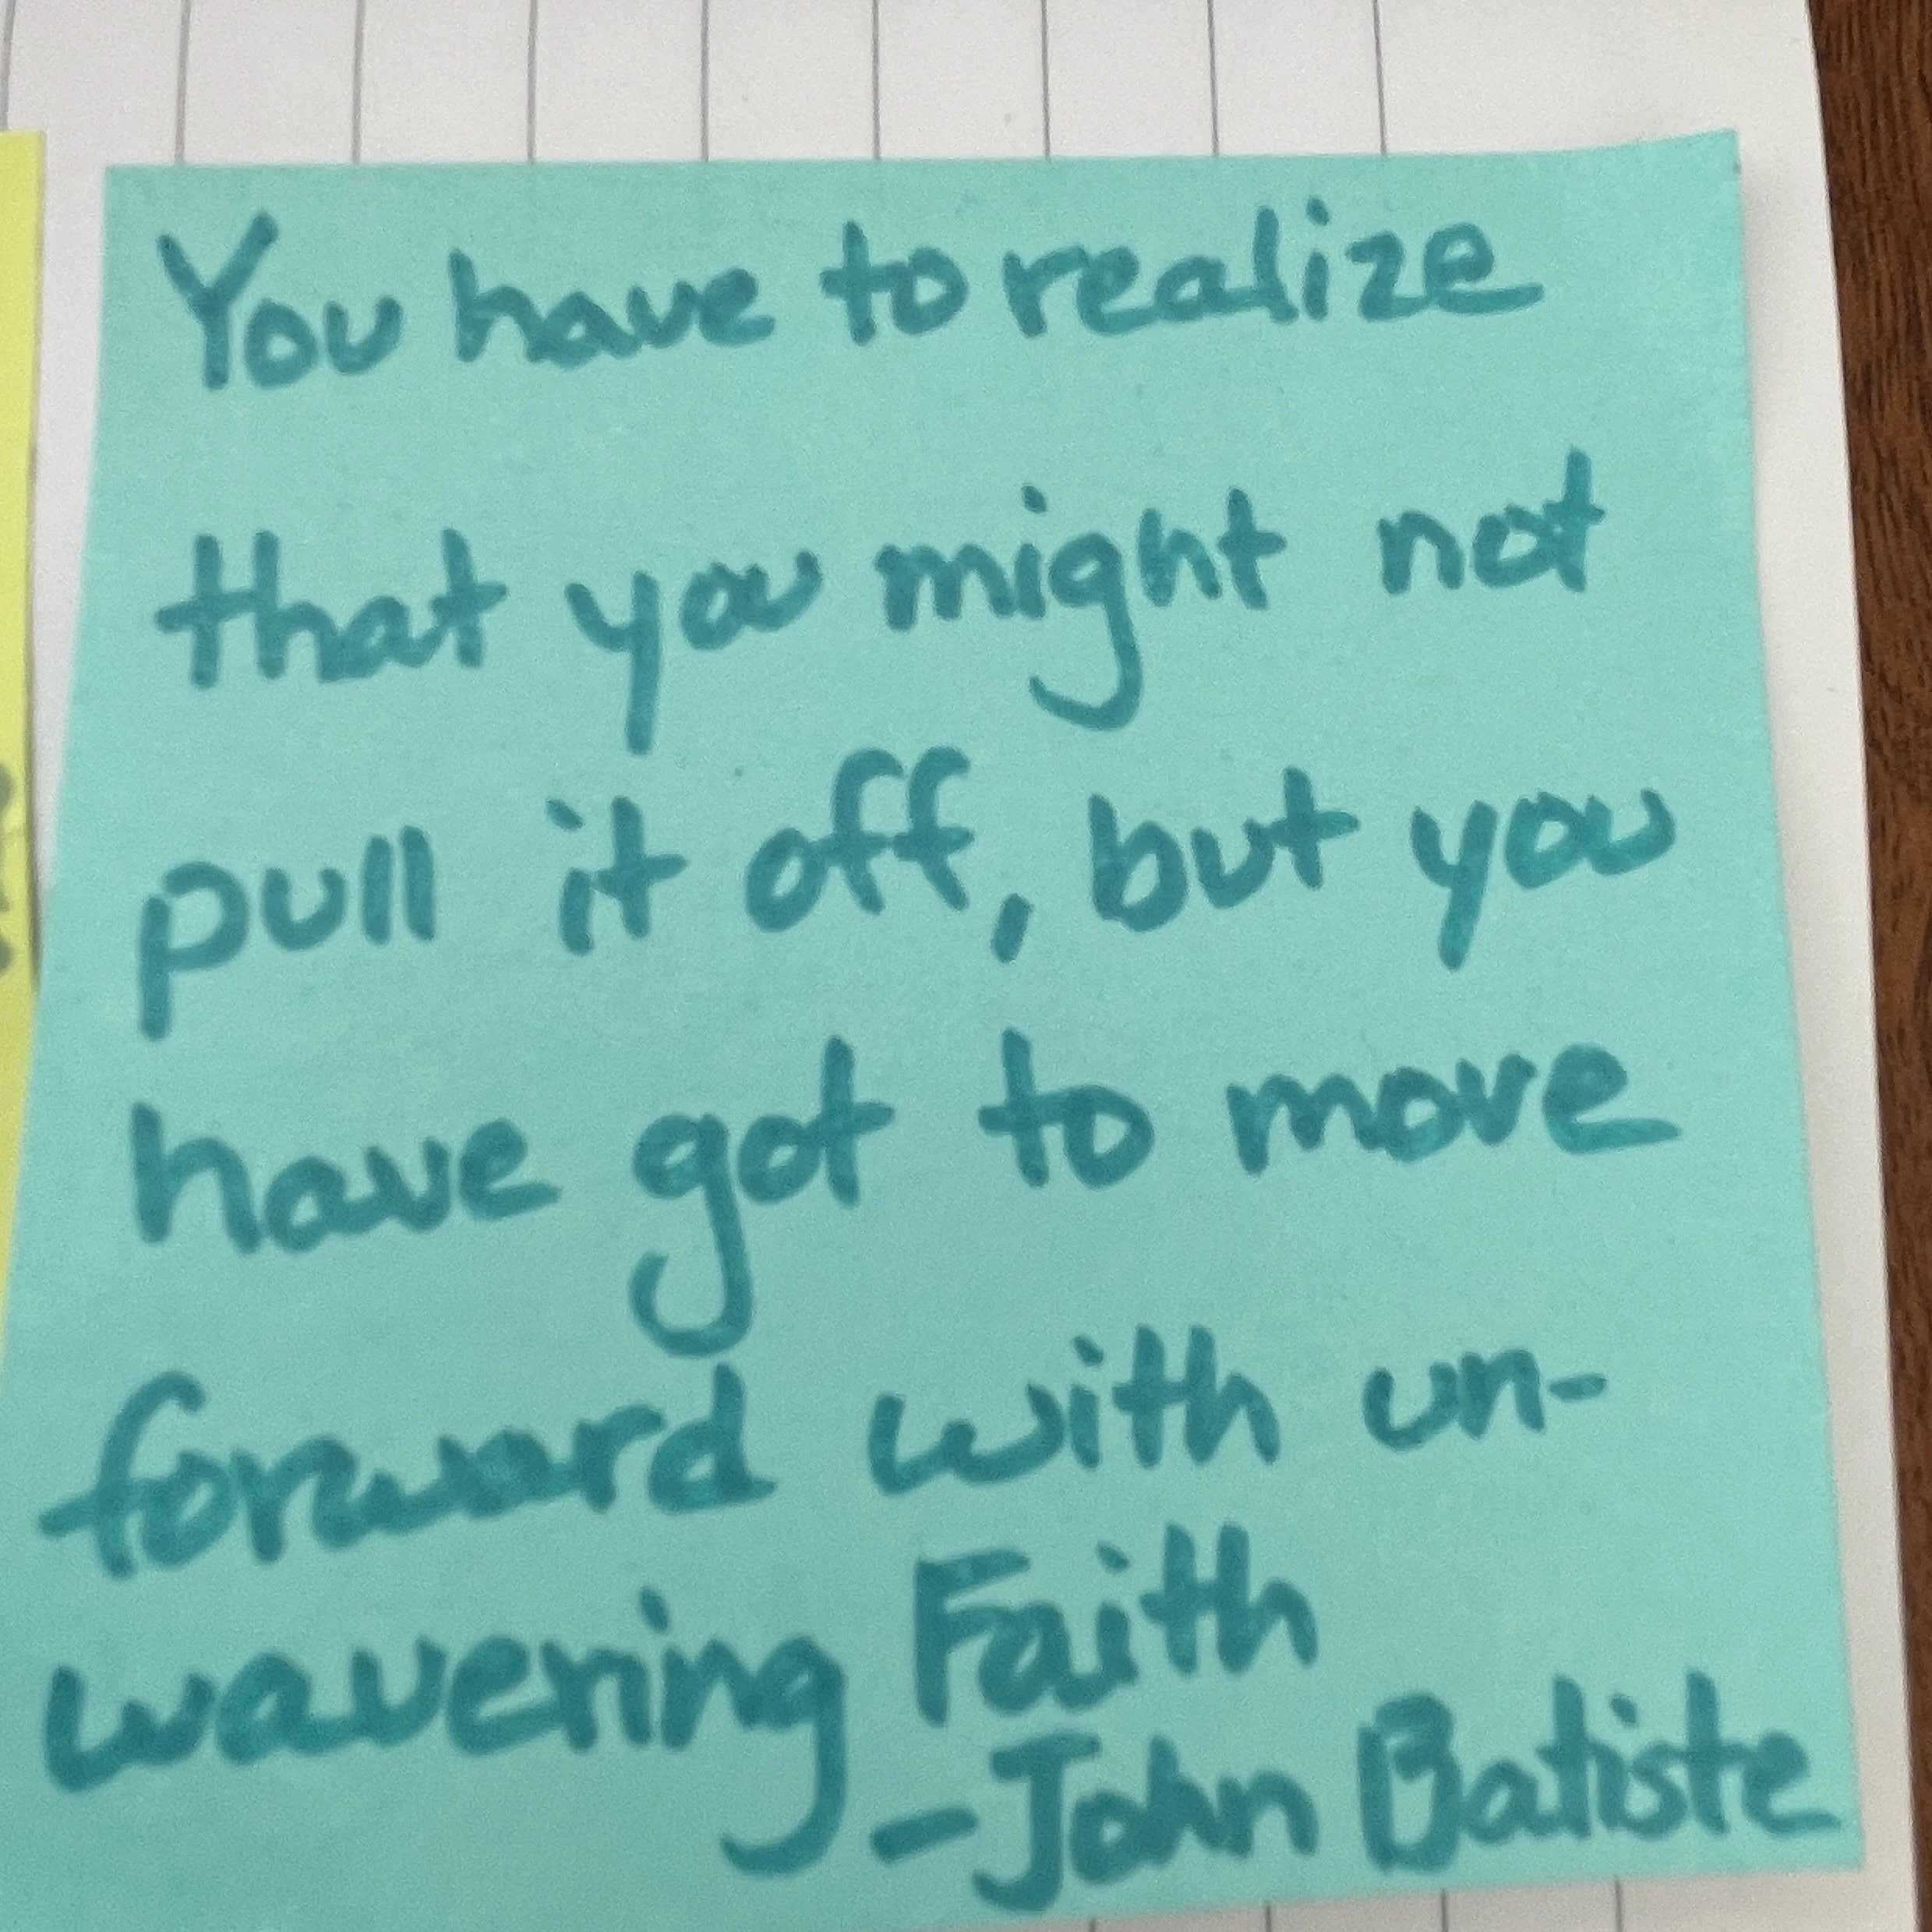 You have to realize
that you might not
pull it off, but you
have got to move
forward with un-
wavering Faith
-John Batiste